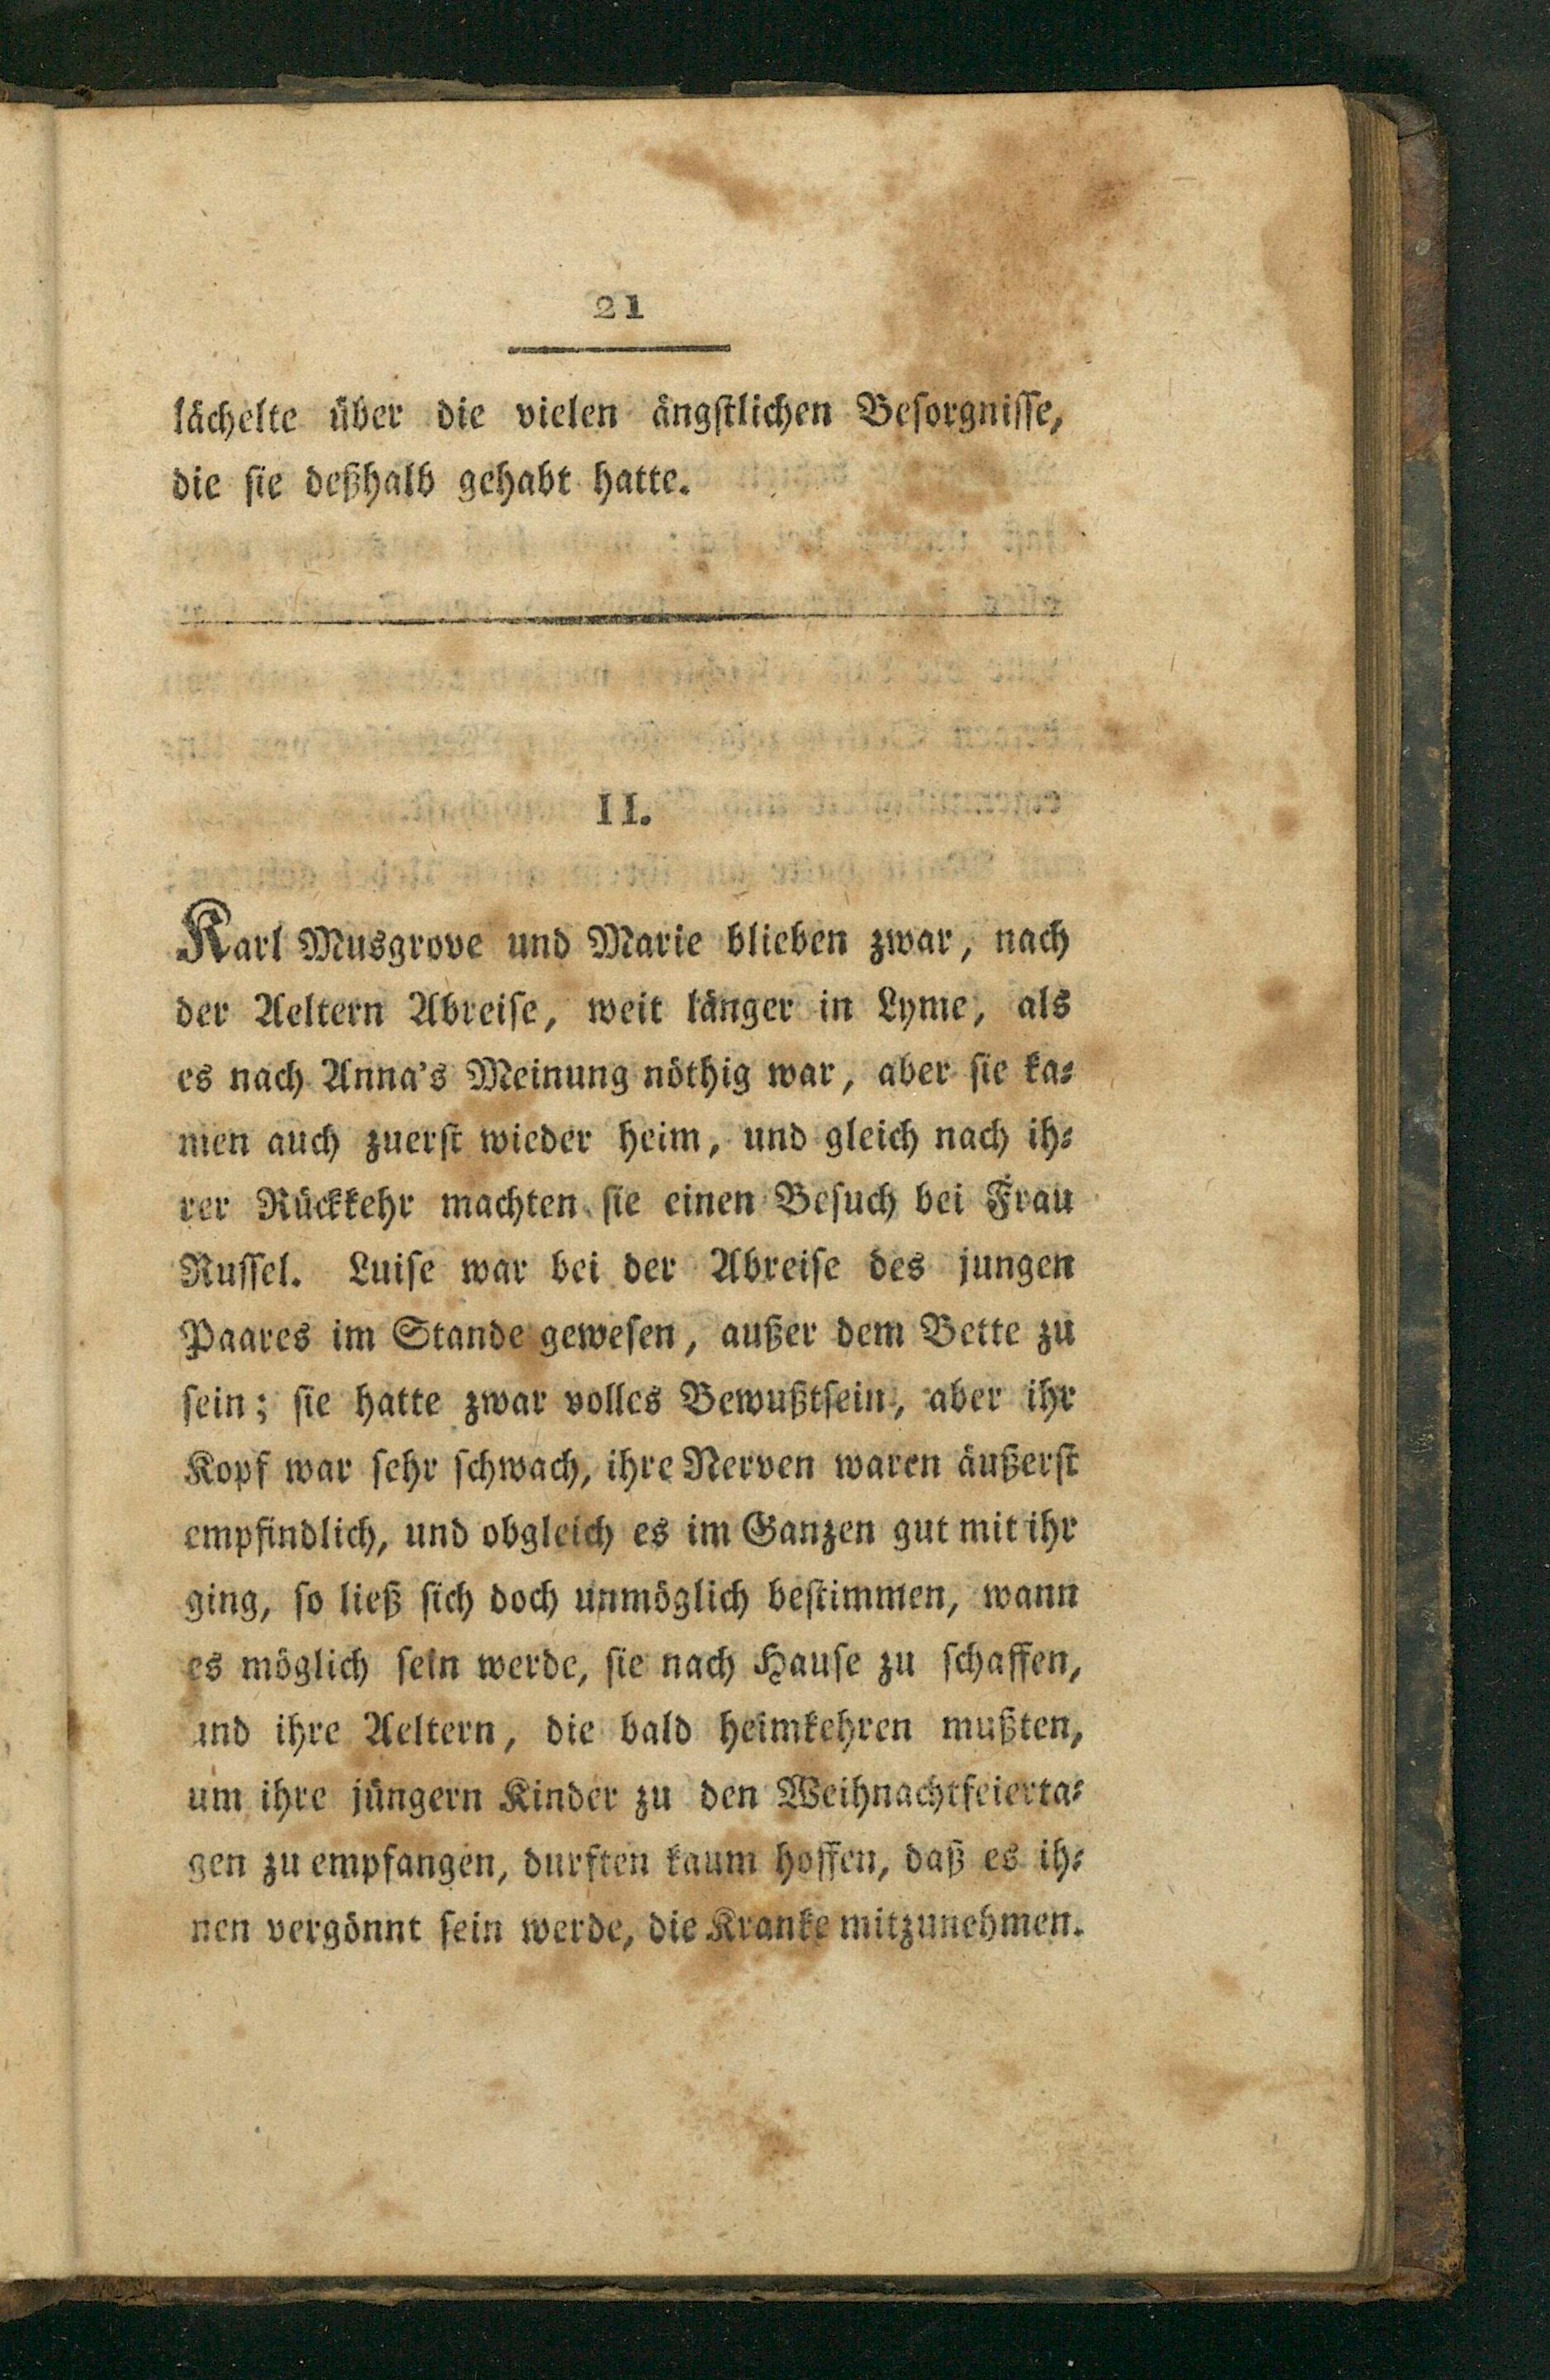 21
lächelte über die vielen ängstlichen Besorgnisse,
die sie deßhalb gehabt hatte.
II.
Karl Musgrove und Marie blieben zwar, nach
der Aeltern Abreise, weit länger in Lyme, als
es nach Anna's Meinung nöthig war, aber sie ka-
men auch zuerst wieder heim, und gleich nach ih-
rer Rückkehr machten sie einen Besuch bei Frau
Russel. Luise war bei der Abreise des jungen
Paares im Stande gewesen, außer dem Bette zu
sein; sie hatte zwar volles Bewußtsein, aber ihr
Kopf war sehr schwach, ihre Nerven waren äußerst
empfindlich, und obgleich es im Ganzen gut mit ihr
ging, so ließ sich doch unmöglich bestimmen, wann
es möglich sein werde, sie nach Hause zu schaffen,
und ihre Aeltern, die bald heimkehren mußten,
um ihre jüngern Kinder zu den Weihnachtfeierta-
gen zu empfangen, durften kaum hoffen, daß es ih-
nen vergönnt sein werde, die Kranke mitzunehmen.